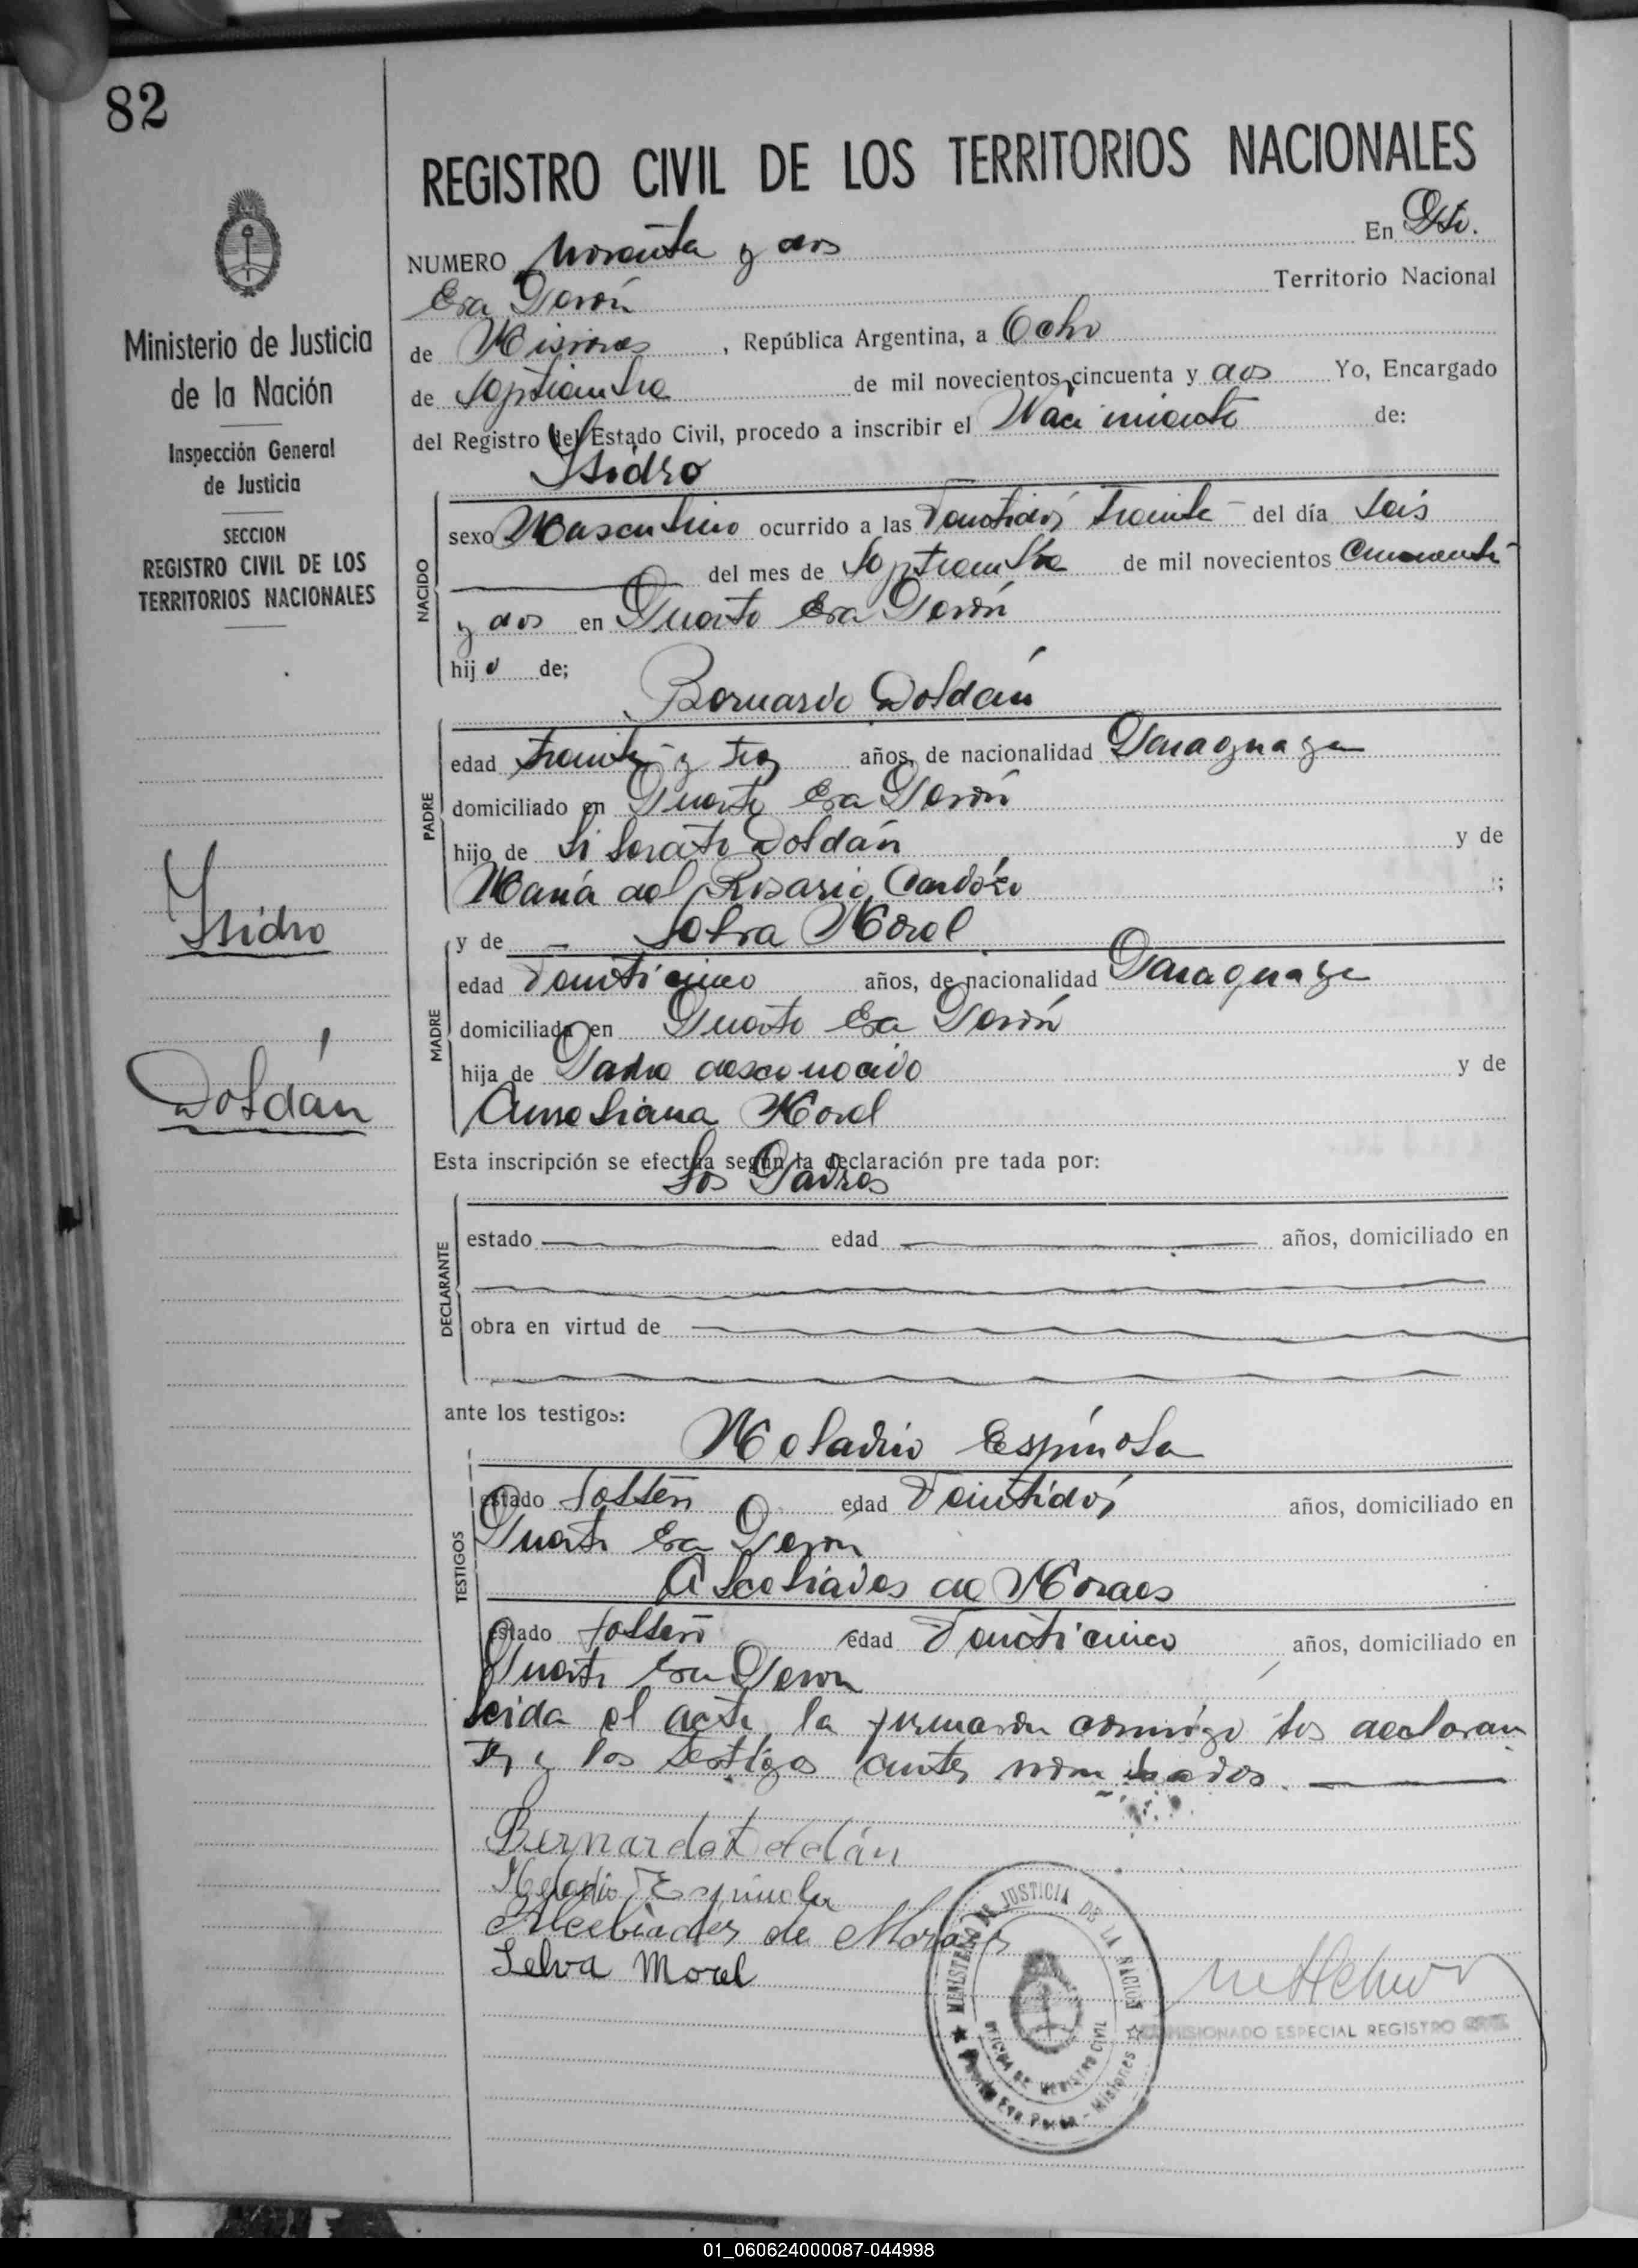 82
Ministerio de Justicia
de la Nación
Inspección General
de Justicia
SECCION
REGISTRO CIVIL DE LOS
TERRITORIOS NACIONALES
Isidro
Doldán
REGISTRO CIVIL DE LOS TERRITORIOS NACIONALES
NUMERO Noventa y dos En Pto.
Eva Perón Territorio Nacional
de Misiones, República Argentina, a Ocho
de Septiembre de mil novecientos cincuenta y dos Yo, Encargado
del Registro del Estado Civil, procedo a inscribir el Nacimiento de:
Isidro
NACIDO
sexo Masculino ocurrido a las Veintidós treinta del día Seis
del mes de Septiembre de mil novecientos Cincuenta
y dos en Puerto Eva Perón
hijo de;
Bernardo Doldán
PADRE
edad treinta y tres años, de nacionalidad Paraguaya
domiciliado en Puerto Eva Perón
hijo de Liborato Doldán y de
María del Rosario Cardózo ;
y de Selva Morel
MADRE
edad Veinticinco años, de nacionalidad Paraguaya
domiciliada en Puerto Eva Perón
hija de Padre desconocido y de
Ameliana Morel
Esta inscripción se efectúa según la declaración pre tada por:
Los Padres
DECLARANTE
estado edad años, domiciliado en
obra en virtud de
ante los testigos:
Heladio Espínola
TESTIGOS
estado soltero edad Veintidós años, domiciliado en
Puerto Eva Perón
Alcebiades de Moraes
estado soltero edad Veinticinco años, domiciliado en
Puerto Eva Peron
Leida el acta, la firmaron conmigo los declaran
tes y los testigos antes nombrados.
Bernardo Doldán
Heladio Espinola
Alcebiades de Moraes
Selva Morel
MINISTERIO DE JUSTICIA DE LA NACION
OFICINA DE REGISTRO CIVIL
Puerto Eva Perón - Misiones
COMISIONADO ESPECIAL REGISTRO CIVIL
01_060624000087-044998